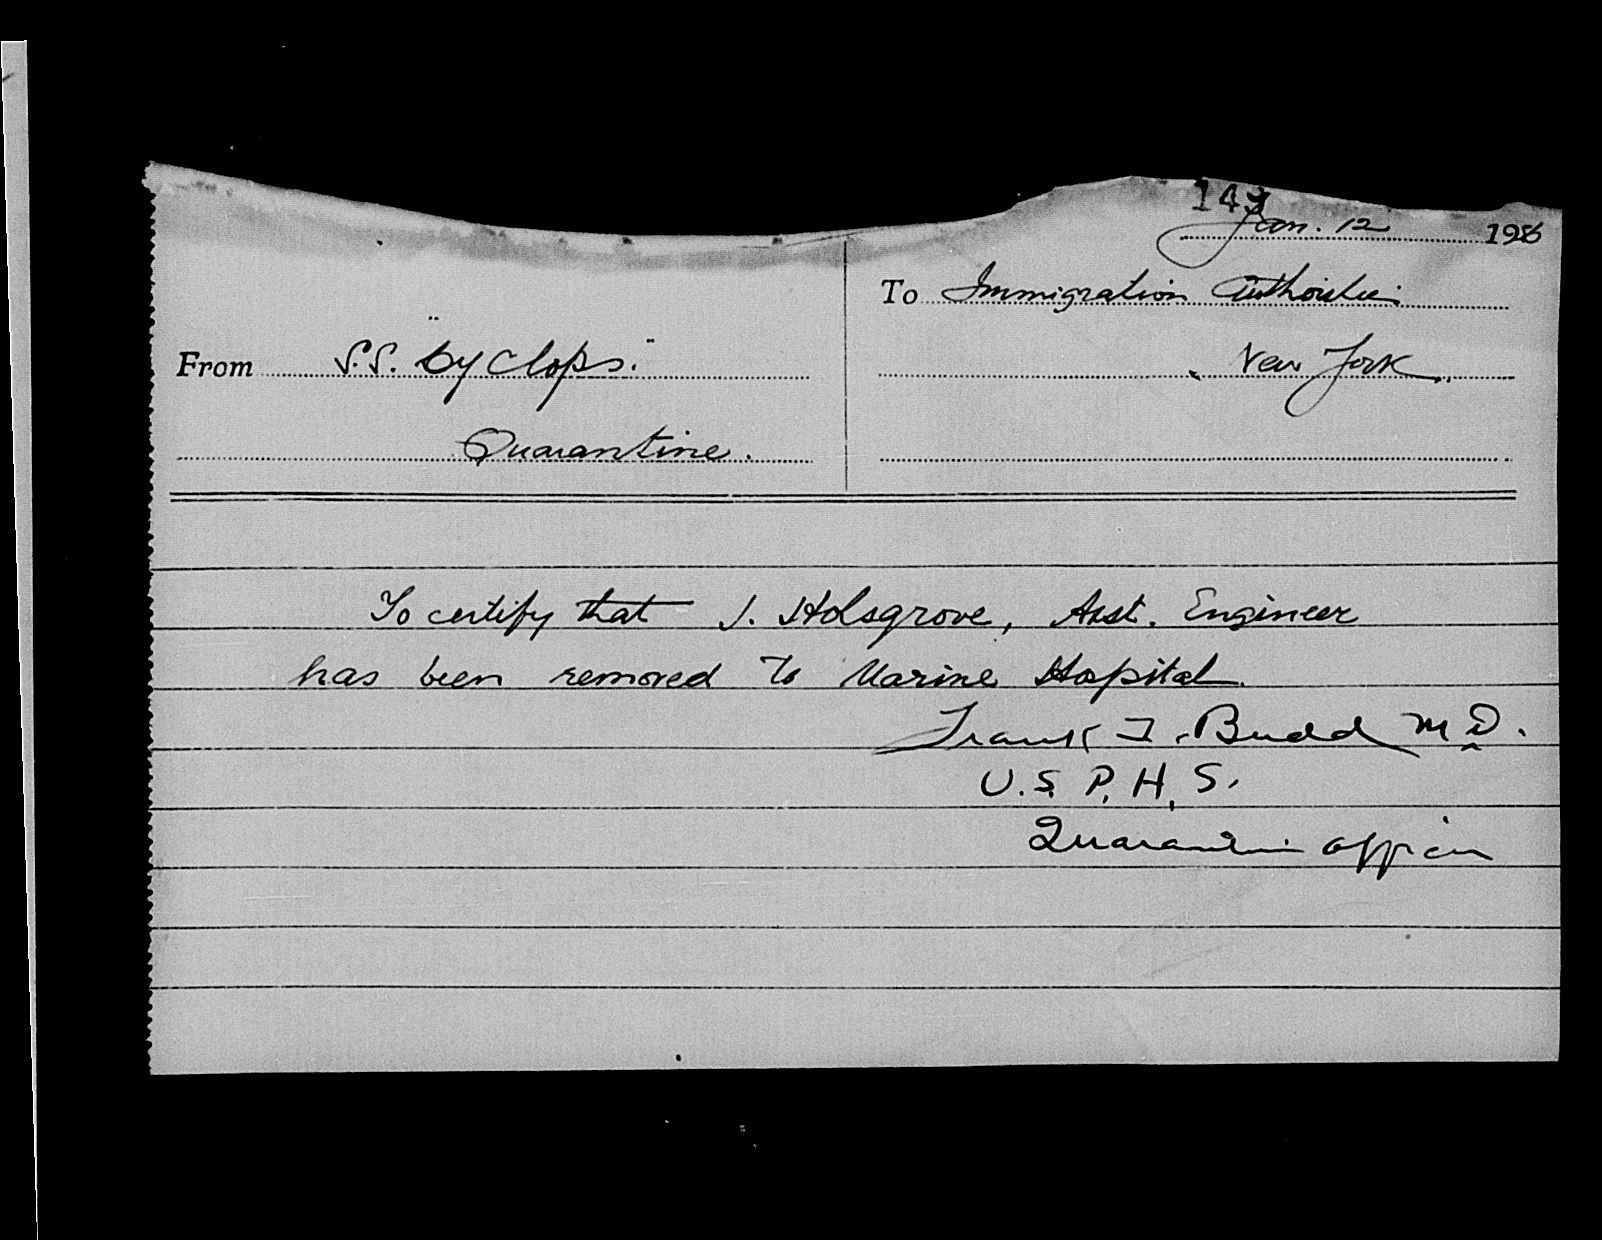 143
Jan. 12 1926
To Immigration Authorities
New York.
From S.S. "Cyclops."
Quarantine.
To certify that J. Holsgrove, Asst. Engineer
has been removed to Marine Hospital.
Frank T. Budd M.D.
U.S.P.H.S.
Quarantine Officer